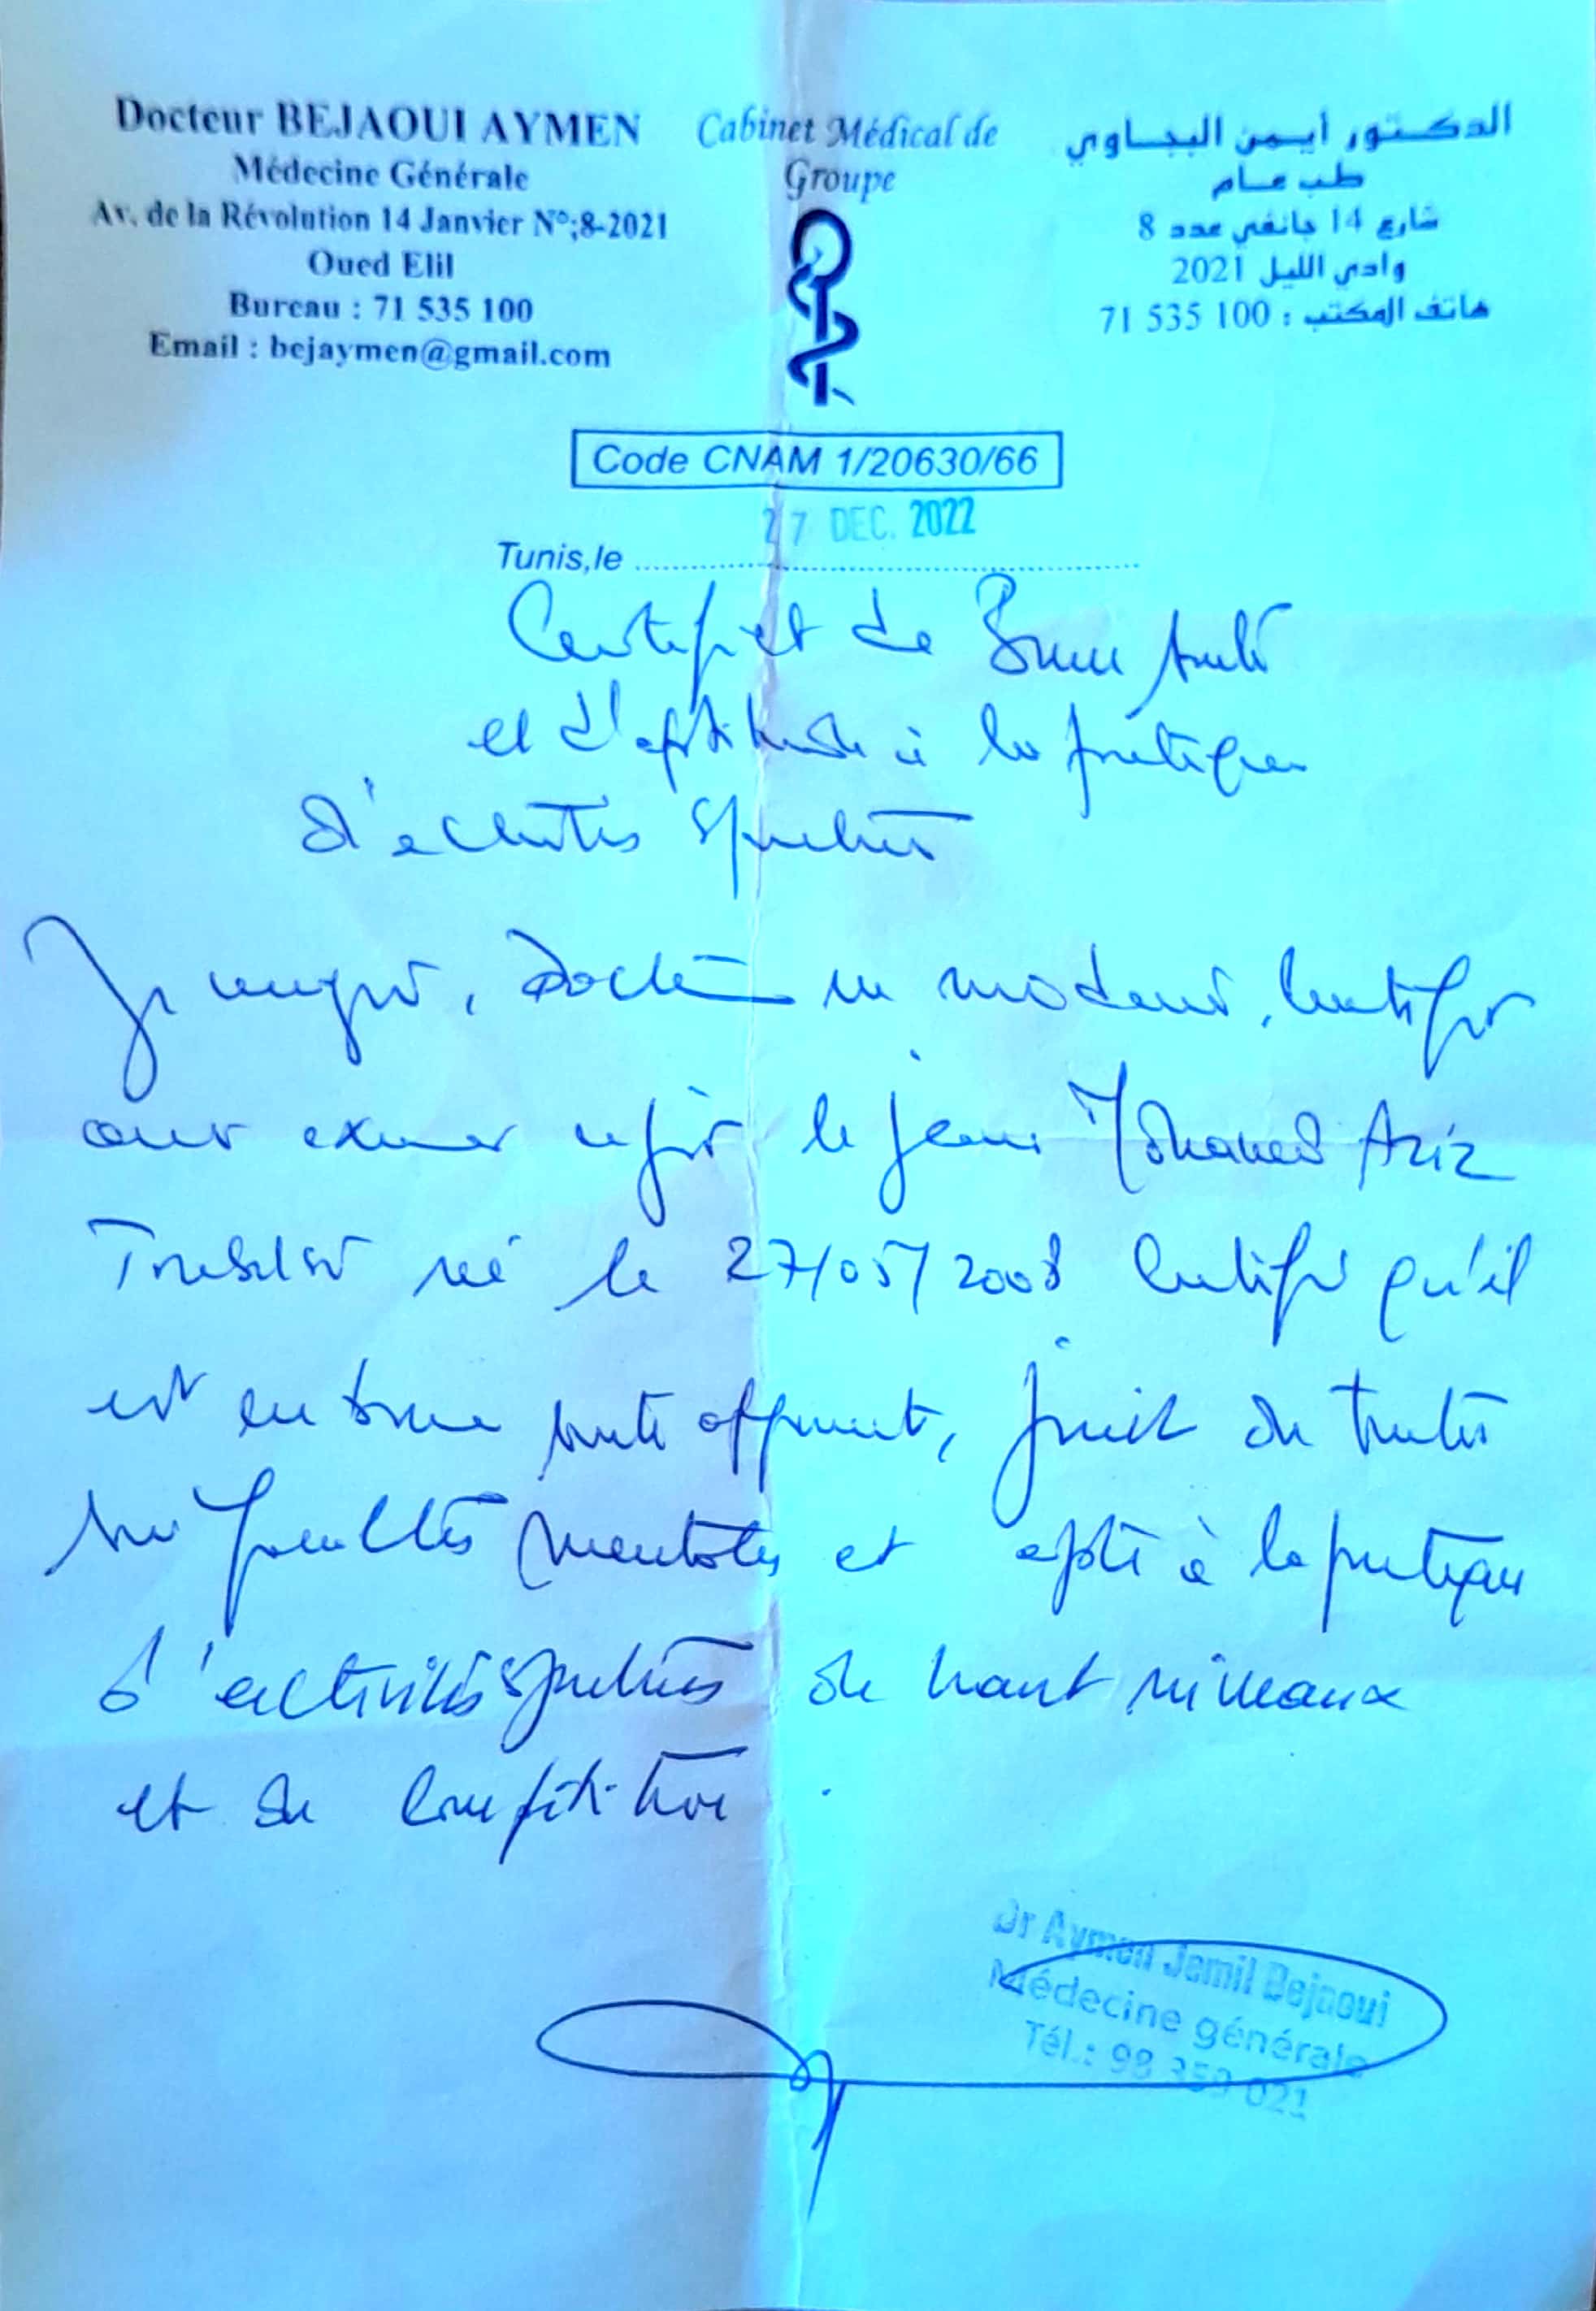 Docteur BEJAOUI AYMEN
Médecine Générale
Av. de la Révolution 14 Janvier N°;8-2021
Oued Elil
Bureau : 71 535 100
Email : bejaymen@gmail.com
Cabinet Médical de
Groupe
الدكتور أيمن البجاوي
طب عام
شارع 14 جانفي عدد 8
وادي الليل 2021
هاتف المكتب : 100 535 71
Code CNAM 1/20630/66
27 DEC. 2022
Tunis,le
Certificat de Bonne santé
et d'aptitude à la pratique
d'activités sportives
Je soussigné, Docteur en médecine, certifie
avoir examiné le jeune Mohamed Aziz
né le 27/05/2008 certifie qu'il
est en bonne santé apparente, jouit de toutes
ses facultés mentales et apte à la pratique
d'activités sportives de haut niveaux
et de compétition
Dr Aymen Jemil Bejaoui
Médecine générale
Tél.: 98 359 021